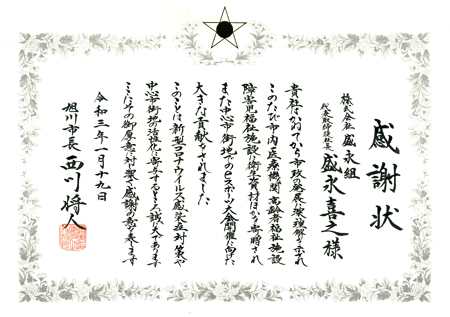 感謝状
株式会社 盛永組
代表取締役社長 盛永喜之 様
貴社はかねてから市政発展に深い理解を示され
このたび市内医療機関、高齢者福祉施設
障害児福祉施設に衛生資材ほかを寄贈され
また中心市街地でのeスポーツ大会開催に向けた
大きな貢献をされました
このことは新型コロナウイルス感染症対策や
中心市街地活性化に寄与するところ誠に大であります
ここにその御厚意に対し深く感謝の意を表します
令和三年一月十九日
旭川市長 西川将人